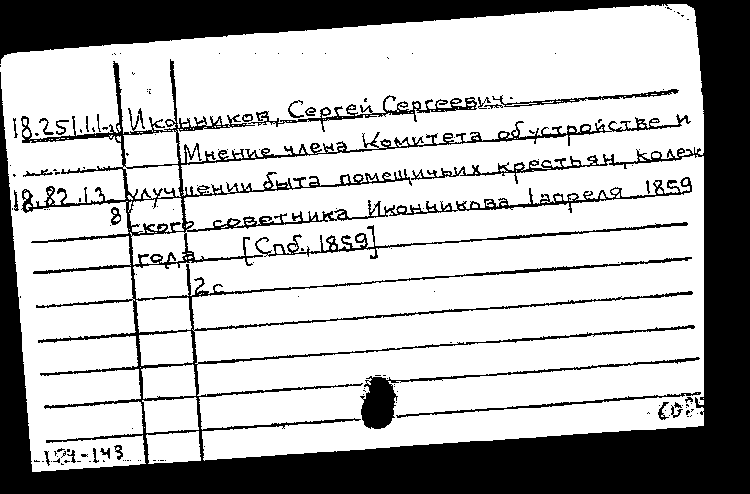 18.251.1.1 Иконников, Сергей Сергеевич.
Мнение члена Комитета об устройстве и
18.82.13 улучшении быта помещичьих крестьян, колеж
8 ского советника Иконникова 1 апреля 1859
года. [Спб., 1859]
2 с